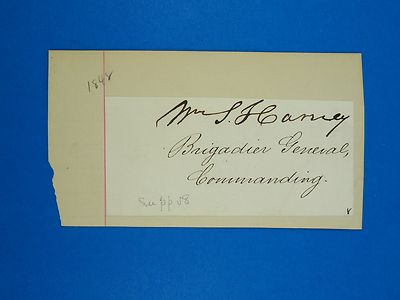 1848
Wm S. Harney
Brigadier General,
Commanding.
Supp 58
8